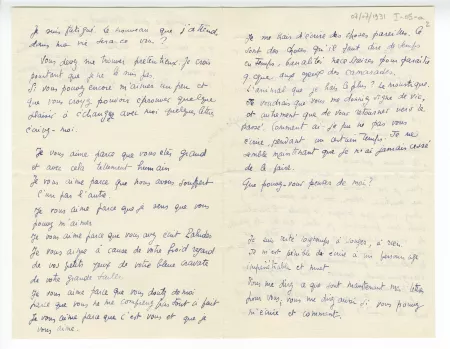 Je suis fatigué, le nouveau que j'attend
dans ma vie sera-ce vous?
Vous devez me trouver prétentieux. Je crois
pourtant que je ne le suis pas.
Si vous pouvez encore m'aimer un peu et
que vous croyez pouvoir éprouver quelque
plaisir à échanger avec moi quelques lettres
écrivez-moi.
Je vous aime parce que vous êtes grand
et avec cela tellement humain
Je vous aime parce que nous avons souffert
l'un par l'autre.
Je vous aime parce que je sens que vous
pouvez m'aimer
Je vous aime parce que vous avez écrit
Je vous aime à cause de votre froid regard
de vos petits yeux de votre bleue cravate
de votre grande
Je vous aime parce que vous doutez de moi
parce que vous ne me comprenez pas tout à fait
Je vous aime parce que c'est vous et que je
vous aime.
07/07/1931
2
Je me hais d'écrire des choses pareilles. Ce
sont des choses qu'il faut dire de temps
en temps, banalités nécessaires pour paraître
à ceux des camarades.
L'animal que je hais le plus? Le moustique.
Je voudrais que vous me donniez signe de vie,
et autrement que de vous retourner vers le
passé. Comment ai-je pu ne pas vous
écrire pendant un certain temps. Il me
semble maintenant que je n'ai jamais cessé
de le faire.
Que pouvez-vous penser de moi?
Je suis resté longtemps à songer, à rien.
Il m'est pénible de écrire à un personnage
impénétrable et muet.
Vous me direz ce que sont maintenant ma lettre
pour vous, vous me direz aussi si vous pouvez
m'écrire et comment.